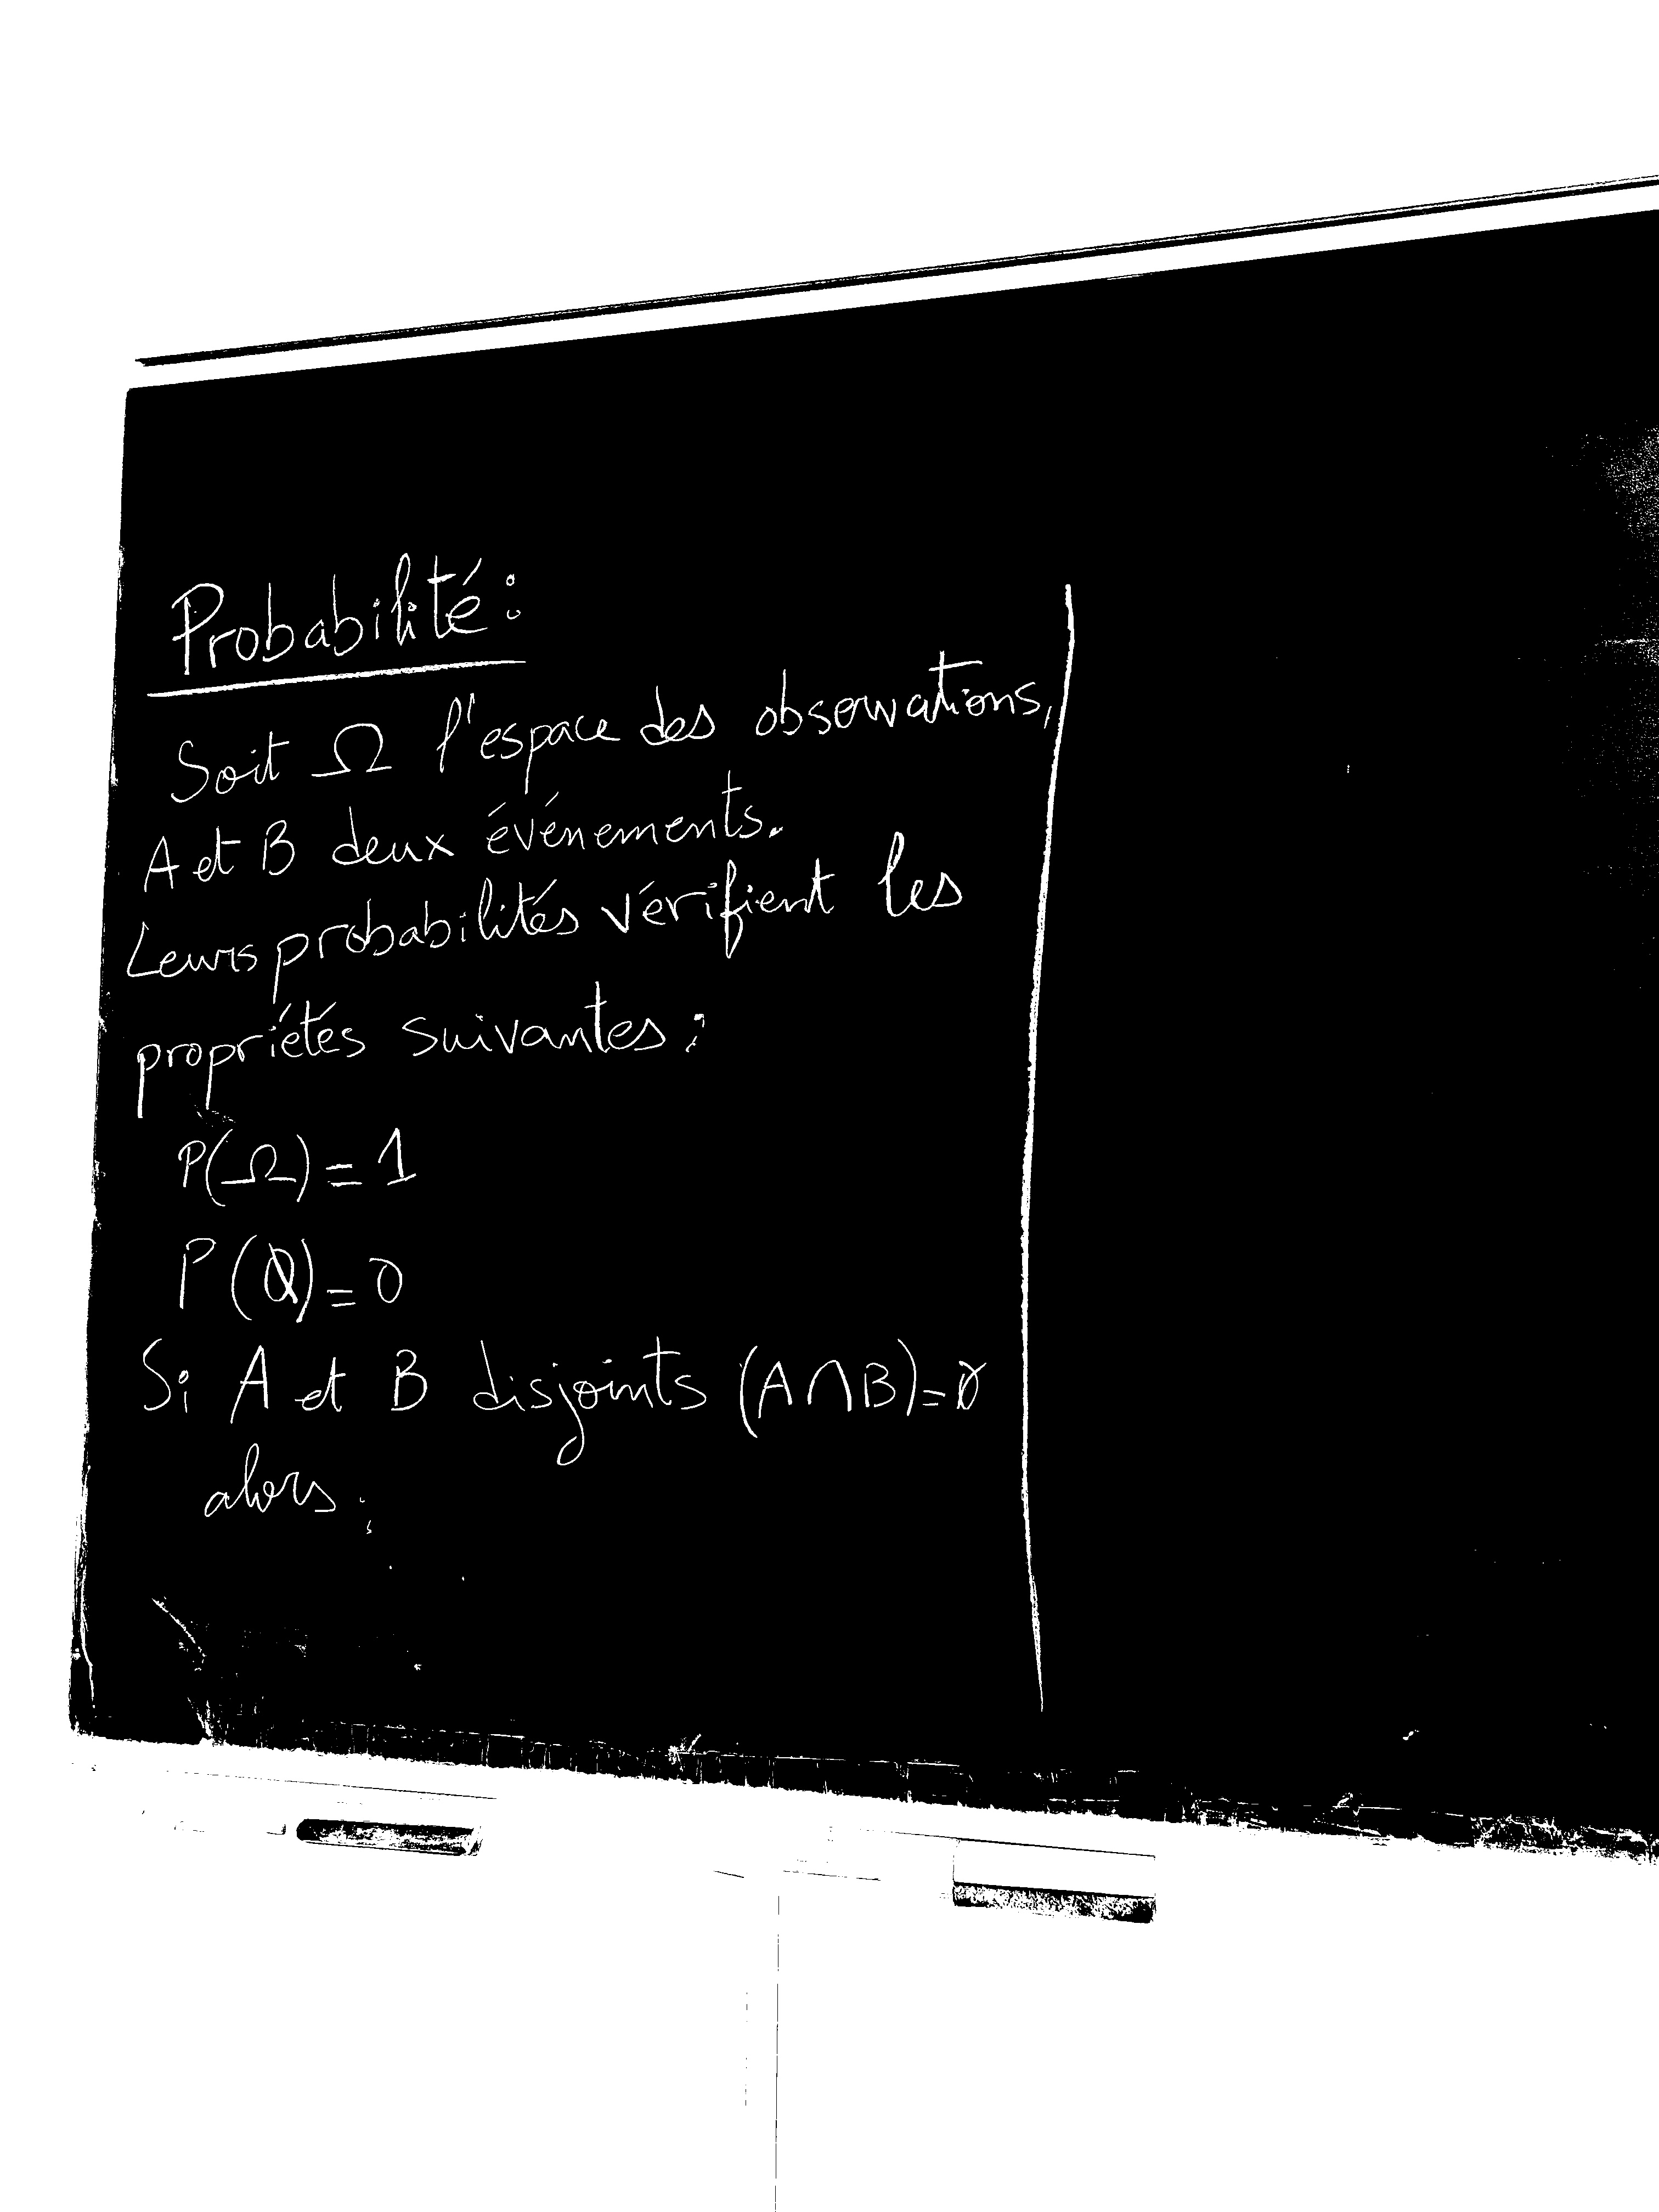 Probabilité :
Soit Ω l'espace des observations,
A et B deux événements.
Leurs probabilités vérifient les
propriétés suivantes :
P(Ω) = 1
P(∅) = 0
Si A et B disjoints (A∩B)=∅
alors :